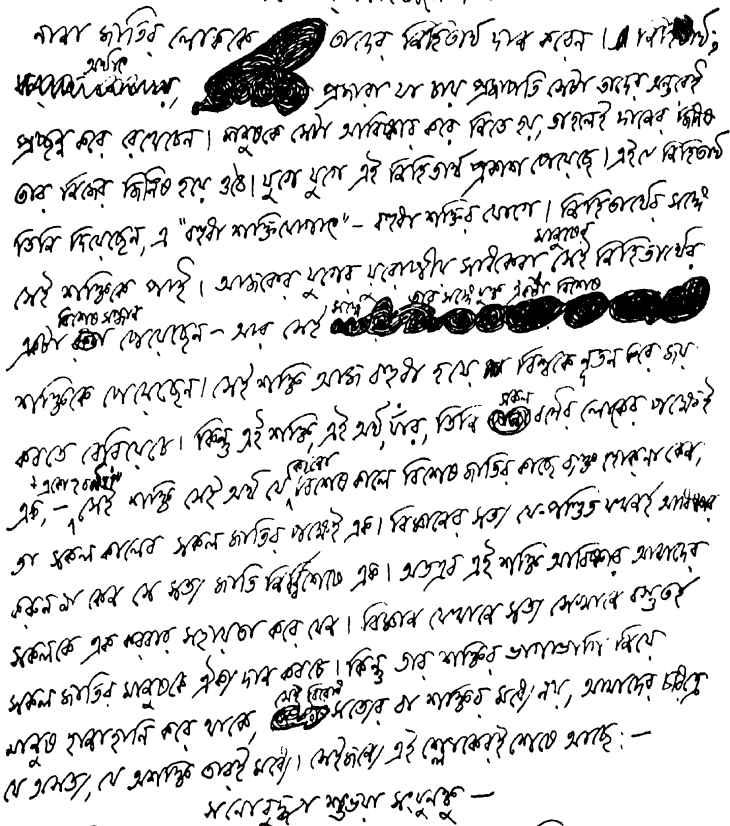 নানা জাতির লোককে তাদের নিহিতার্থ দান করেন। নিহিতার্থ,
অর্থাৎ
প্রজারা যা চায় প্রজাপতি সেটা তাদের অন্তরেই
প্রচ্ছন্ন করে রেখেচেন। মানুষকে সেটা আবিষ্কার করে নিতে হয়, তাহলেই দানের জিনিষ
তার নিজের জিনিষ হয়ে ওঠে। যুগে যুগে এই নিহিতার্থ প্রকাশ পেয়েছে। এই যে নিহিতার্থ
তিনি দিয়েছেন, এ "বহুধা শক্তিযোগাৎ" – বহুধা শক্তির যোগে। নিহিতার্থের সঙ্গে
সেই শক্তিকে পাই। আজকের যুগের য়ুরোপীয় সাধকেরা মানুষের সেই নিহিতার্থের
একটা বিশেষ সন্ধান পেয়েছেন – আর সেই সঙ্গে তার সঙ্গে যুক্ত একটা বিশেষ
শক্তিকে পেয়েছেন। সেই শক্তি আজ বহুধা হয়ে বিশ্বকে নূতন করে জয়
করতে বেরিয়েচে। কিন্তু এই শক্তি, এই অর্থ, যাঁর, তিনি সকল বর্ণের লোকের পক্ষেই
এক, – একোহবর্ণঃ। সেই শক্তি সেই অর্থ যে কোনো বিশেষ কালে বিশেষ জাতির কাছে ব্যক্ত হোক না কেন,
তা সকল কালের সকল জাতির পক্ষেই এক। বিজ্ঞানের সত্য যে-পণ্ডিত যখনই আবিষ্কার
করুন না কেন সে সত্য জাতি নির্ব্বিশেষে এক। অতএব এই শক্তি আবিষ্কার আমাদের
সকলকে এক করবার সহায়তা করে যেন। বিজ্ঞান যেখানে সত্য সেখানে বস্তুতই
সকল জাতির মানুষকে ঐক্য দান করচে। কিন্তু তার শক্তির ভাগাভাগি নিয়ে
মানুষ হানাহানি করে থাকে, সেই বিরোধ সত্যের বা শক্তির মধ্যে নয়, আমাদের চরিত্রে
যে অসত্য, যে অশক্তি তারই মধ্যে। সেইজন্যে এই শ্লোকেরই শেষে আছে: —
সনোবুদ্ধ্যা শুভয়া সংযুনক্তু —